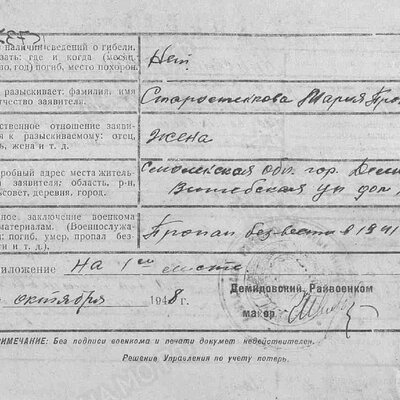 наличии сведений о гибели,
зать: где и когда (месяц,
во, год) погиб, место похорон.
Нет
разыскивает: фамилия, имя
чество заявителя.
Старостенкова Мария Про
ственное отношение заяви-
я к разыскиваемому: отец,
ь, жена и т. д.
Жена
робный адрес места житель-
заявителя: область, р-н,
ьсовет, деревня, город.
Смоленская обл. гор. Деми
Витебская ул дом
ное заключение военкома
материалам. (Военнослужа-
: погиб, умер, пропал без-
и и т. д.).
Пропал без вести в 1941
иложение На 1ом листе
октября 1948 г.
Демидовский, Райвоенком
майор
РИМЕЧАНИЕ: Без подписи военкома и печати документ недействителен.
Решение Управления по учету потерь.